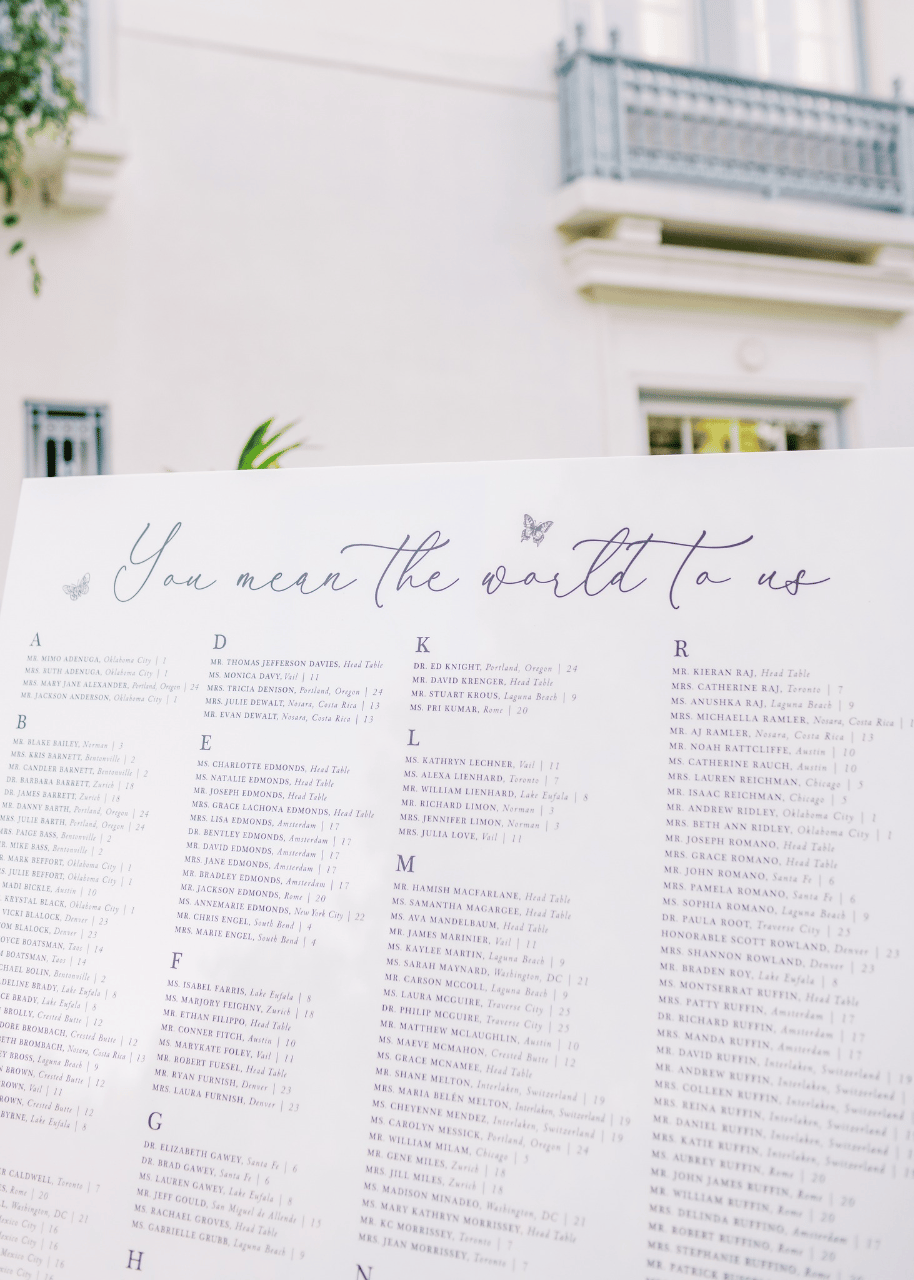 You mean the world to us
A
MR. MIMO ADENUGA, Oklahoma City | 1
MRS. RUTH ADENUGA, Oklahoma City | 1
MRS. MARY JANE ALEXANDER, Portland, Oregon | 24
MR. JACKSON ANDERSON, Oklahoma City | 1
B
MR. BLAKE BAILEY, Norman | 3
MRS. KRIS BARNETT, Bentonville | 2
MR. CANDLER BARNETT, Bentonville | 2
DR. BARBARA BARRETT, Zurich | 18
DR. JAMES BARRETT, Zurich | 18
MR. DANNY BARTH, Portland, Oregon | 24
MRS. JULIE BARTH, Portland, Oregon | 24
MRS. PAIGE BASS, Bentonville | 2
MR. MIKE BASS, Bentonville | 2
MARK BEFFORT, Oklahoma City | 1
JULIE BEFFORT, Oklahoma City | 1
MADI BICKLE, Austin | 10
KRYSTAL BLACK, Oklahoma City | 1
VICKI BLALOCK, Denver | 23
BLALOCK, Denver | 23
BOATSMAN, Taos | 14
BOATSMAN, Taos | 14
BOLIN, Bentonville | 2
BRADY, Lake Eufala | 8
BRADY, Lake Eufala | 8
BROLLY, Crested Butte | 12
BROMBACH, Crested Butte | 12
BROMBACH, Nosara, Costa Rica | 13
BROSS, Laguna Beach | 9
BROWN, Crested Butte | 12
Vail | 11
Crested Butte | 12
BYRNE, Lake Eufala | 8
CALDWELL, Toronto | 7
Rome | 20
Washington, DC | 21
Mexico City | 16
Mexico City | 16
Mexico City | 16
City | 16
D
MR. THOMAS JEFFERSON DAVIES, Head Table
MS. MONICA DAVY, Vail | 11
MRS. TRICIA DENISON, Portland, Oregon | 24
MRS. JULIE DEWALT, Nosara, Costa Rica | 13
MR. EVAN DEWALT, Nosara, Costa Rica | 13
E
MS. CHARLOTTE EDMONDS, Head Table
MS. NATALIE EDMONDS, Head Table
MR. JOSEPH EDMONDS, Head Table
MRS. GRACE LACHONA EDMONDS, Head Table
MRS. LISA EDMONDS, Amsterdam | 17
DR. BENTLEY EDMONDS, Amsterdam | 17
MR. DAVID EDMONDS, Amsterdam | 17
MRS. JANE EDMONDS, Amsterdam | 17
MR. BRADLEY EDMONDS, Amsterdam | 17
MR. JACKSON EDMONDS, Rome | 20
MS. ANNEMARIE EDMONDS, New York City | 22
MR. CHRIS ENGEL, South Bend | 4
MRS. MARIE ENGEL, South Bend | 4
F
MS. ISABEL FARRIS, Lake Eufala | 8
MS. MARJORY FEIGHNY, Zurich | 18
MR. ETHAN FILIPPO, Head Table
MR. CONNER FITCH, Austin | 10
MS. MARYKATE FOLEY, Vail | 11
MR. ROBERT FUESEL, Head Table
MR. RYAN FURNISH, Denver | 23
MRS. LAURA FURNISH, Denver | 23
G
DR. ELIZABETH GAWEY, Santa Fe | 6
DR. BRAD GAWEY, Santa Fe | 6
MS. LAUREN GAWEY, Lake Eufala | 8
MR. JEFF GOULD, San Miguel de Allende | 15
MS. RACHAEL GROVES, Head Table
MS. GABRIELLE GRUBB, Laguna Beach | 9
H
K
DR. ED KNIGHT, Portland, Oregon | 24
MR. DAVID KRENGER, Head Table
MR. STUART KROUS, Laguna Beach | 9
MS. PRI KUMAR, Rome | 20
L
MS. KATHRYN LECHNER, Vail | 11
MS. ALEXA LIENHARD, Toronto | 7
MR. WILLIAM LIENHARD, Lake Eufala | 8
MR. RICHARD LIMON, Norman | 3
MRS. JENNIFER LIMON, Norman | 3
MRS. JULIA LOVE, Vail | 11
M
MR. HAMISH MACFARLANE, Head Table
MS. SAMANTHA MAGARGEE, Head Table
MS. AVA MANDELBAUM, Head Table
MR. JAMES MARINIER, Vail | 11
MS. KAYLEE MARTIN, Laguna Beach | 9
MS. SARAH MAYNARD, Washington, DC | 21
MR. CARSON MCCOLL, Laguna Beach | 9
MS. LAURA MCGUIRE, Traverse City | 25
DR. PHILIP MCGUIRE, Traverse City | 25
MR. MATTHEW MCLAUGHLIN, Austin | 10
MS. MAEVE MCMAHON, Crested Butte | 12
MS. GRACE MCNAMEE, Head Table
MR. SHANE MELTON, Interlaken, Switzerland | 19
MRS. MARIA BELÉN MELTON, Interlaken, Switzerland | 19
MS. CHEYENNE MENDEZ, Interlaken, Switzerland | 19
MS. CAROLYN MESSICK, Portland, Oregon | 24
MR. WILLIAM MILAM, Chicago | 5
MR. GENE MILES, Zurich | 18
MRS. JILL MILES, Zurich | 18
MS. MADISON MINADEO, Washington, DC | 21
MS. MARY KATHRYN MORRISSEY, Head Table
MR. KC MORRISSEY, Toronto | 7
MRS. JEAN MORRISSEY, Toronto | 7
N
R
MR. KIERAN RAJ, Head Table
MRS. CATHERINE RAJ, Toronto | 7
MS. ANUSHKA RAJ, Laguna Beach | 9
MRS. MICHAELLA RAMLER, Nosara, Costa Rica | 1
MR. AJ RAMLER, Nosara, Costa Rica | 13
MR. NOAH RATTCLIFFE, Austin | 10
MS. CATHERINE RAUCH, Austin | 10
MRS. LAUREN REICHMAN, Chicago | 5
MR. ISAAC REICHMAN, Chicago | 5
MR. ANDREW RIDLEY, Oklahoma City | 1
MRS. BETH ANN RIDLEY, Oklahoma City | 1
MR. JOSEPH ROMANO, Head Table
MRS. GRACE ROMANO, Head Table
MR. JOHN ROMANO, Santa Fe | 6
MRS. PAMELA ROMANO, Santa Fe | 6
MS. SOPHIA ROMANO, Laguna Beach | 9
DR. PAULA ROOT, Traverse City | 25
HONORABLE SCOTT ROWLAND, Denver | 23
MRS. SHANNON ROWLAND, Denver | 23
MR. BRADEN ROY, Lake Eufala | 8
MS. MONTSERRAT RUFFIN, Head Table
MRS. PATTY RUFFIN, Amsterdam | 17
DR. RICHARD RUFFIN, Amsterdam | 17
MRS. MANDA RUFFIN, Amsterdam | 17
MR. DAVID RUFFIN, Interlaken, Switzerland | 19
MR. ANDREW RUFFIN, Interlaken, Switzerland
MRS. COLLEEN RUFFIN, Interlaken, Switzerland
MRS. REINA RUFFIN, Interlaken, Switzerland
MR. DANIEL RUFFIN, Interlaken, Switzerland
MRS. KATIE RUFFIN, Interlaken, Switzerland
MS. AUBREY RUFFIN, Rome | 20
MR. JOHN JAMES RUFFIN, Rome | 20
MR. WILLIAM RUFFIN, Rome | 20
MRS. DELINDA RUFFINO, Amsterdam | 17
MR. ROBERT RUFFINO, Rome | 20
MRS. STEPHANIE RUFFINO, Rome | 20
MR. PATRICK